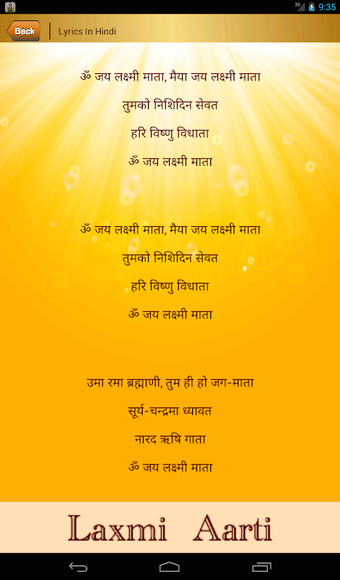 9:35
Back
Lyrics In Hindi
ॐ जय लक्ष्मी माता, मैया जय लक्ष्मी माता
तुमको निशिदिन सेवत
हरि विष्णु विधाता
ॐ जय लक्ष्मी माता
ॐ जय लक्ष्मी माता, मैया जय लक्ष्मी माता
तुमको निशिदिन सेवत
हरि विष्णु विधाता
ॐ जय लक्ष्मी माता
उमा रमा ब्रह्माणी, तुम ही हो जग-माता
सूर्य-चन्द्रमा ध्यावत
नारद ऋषि गाता
ॐ जय लक्ष्मी माता
Laxmi Aarti